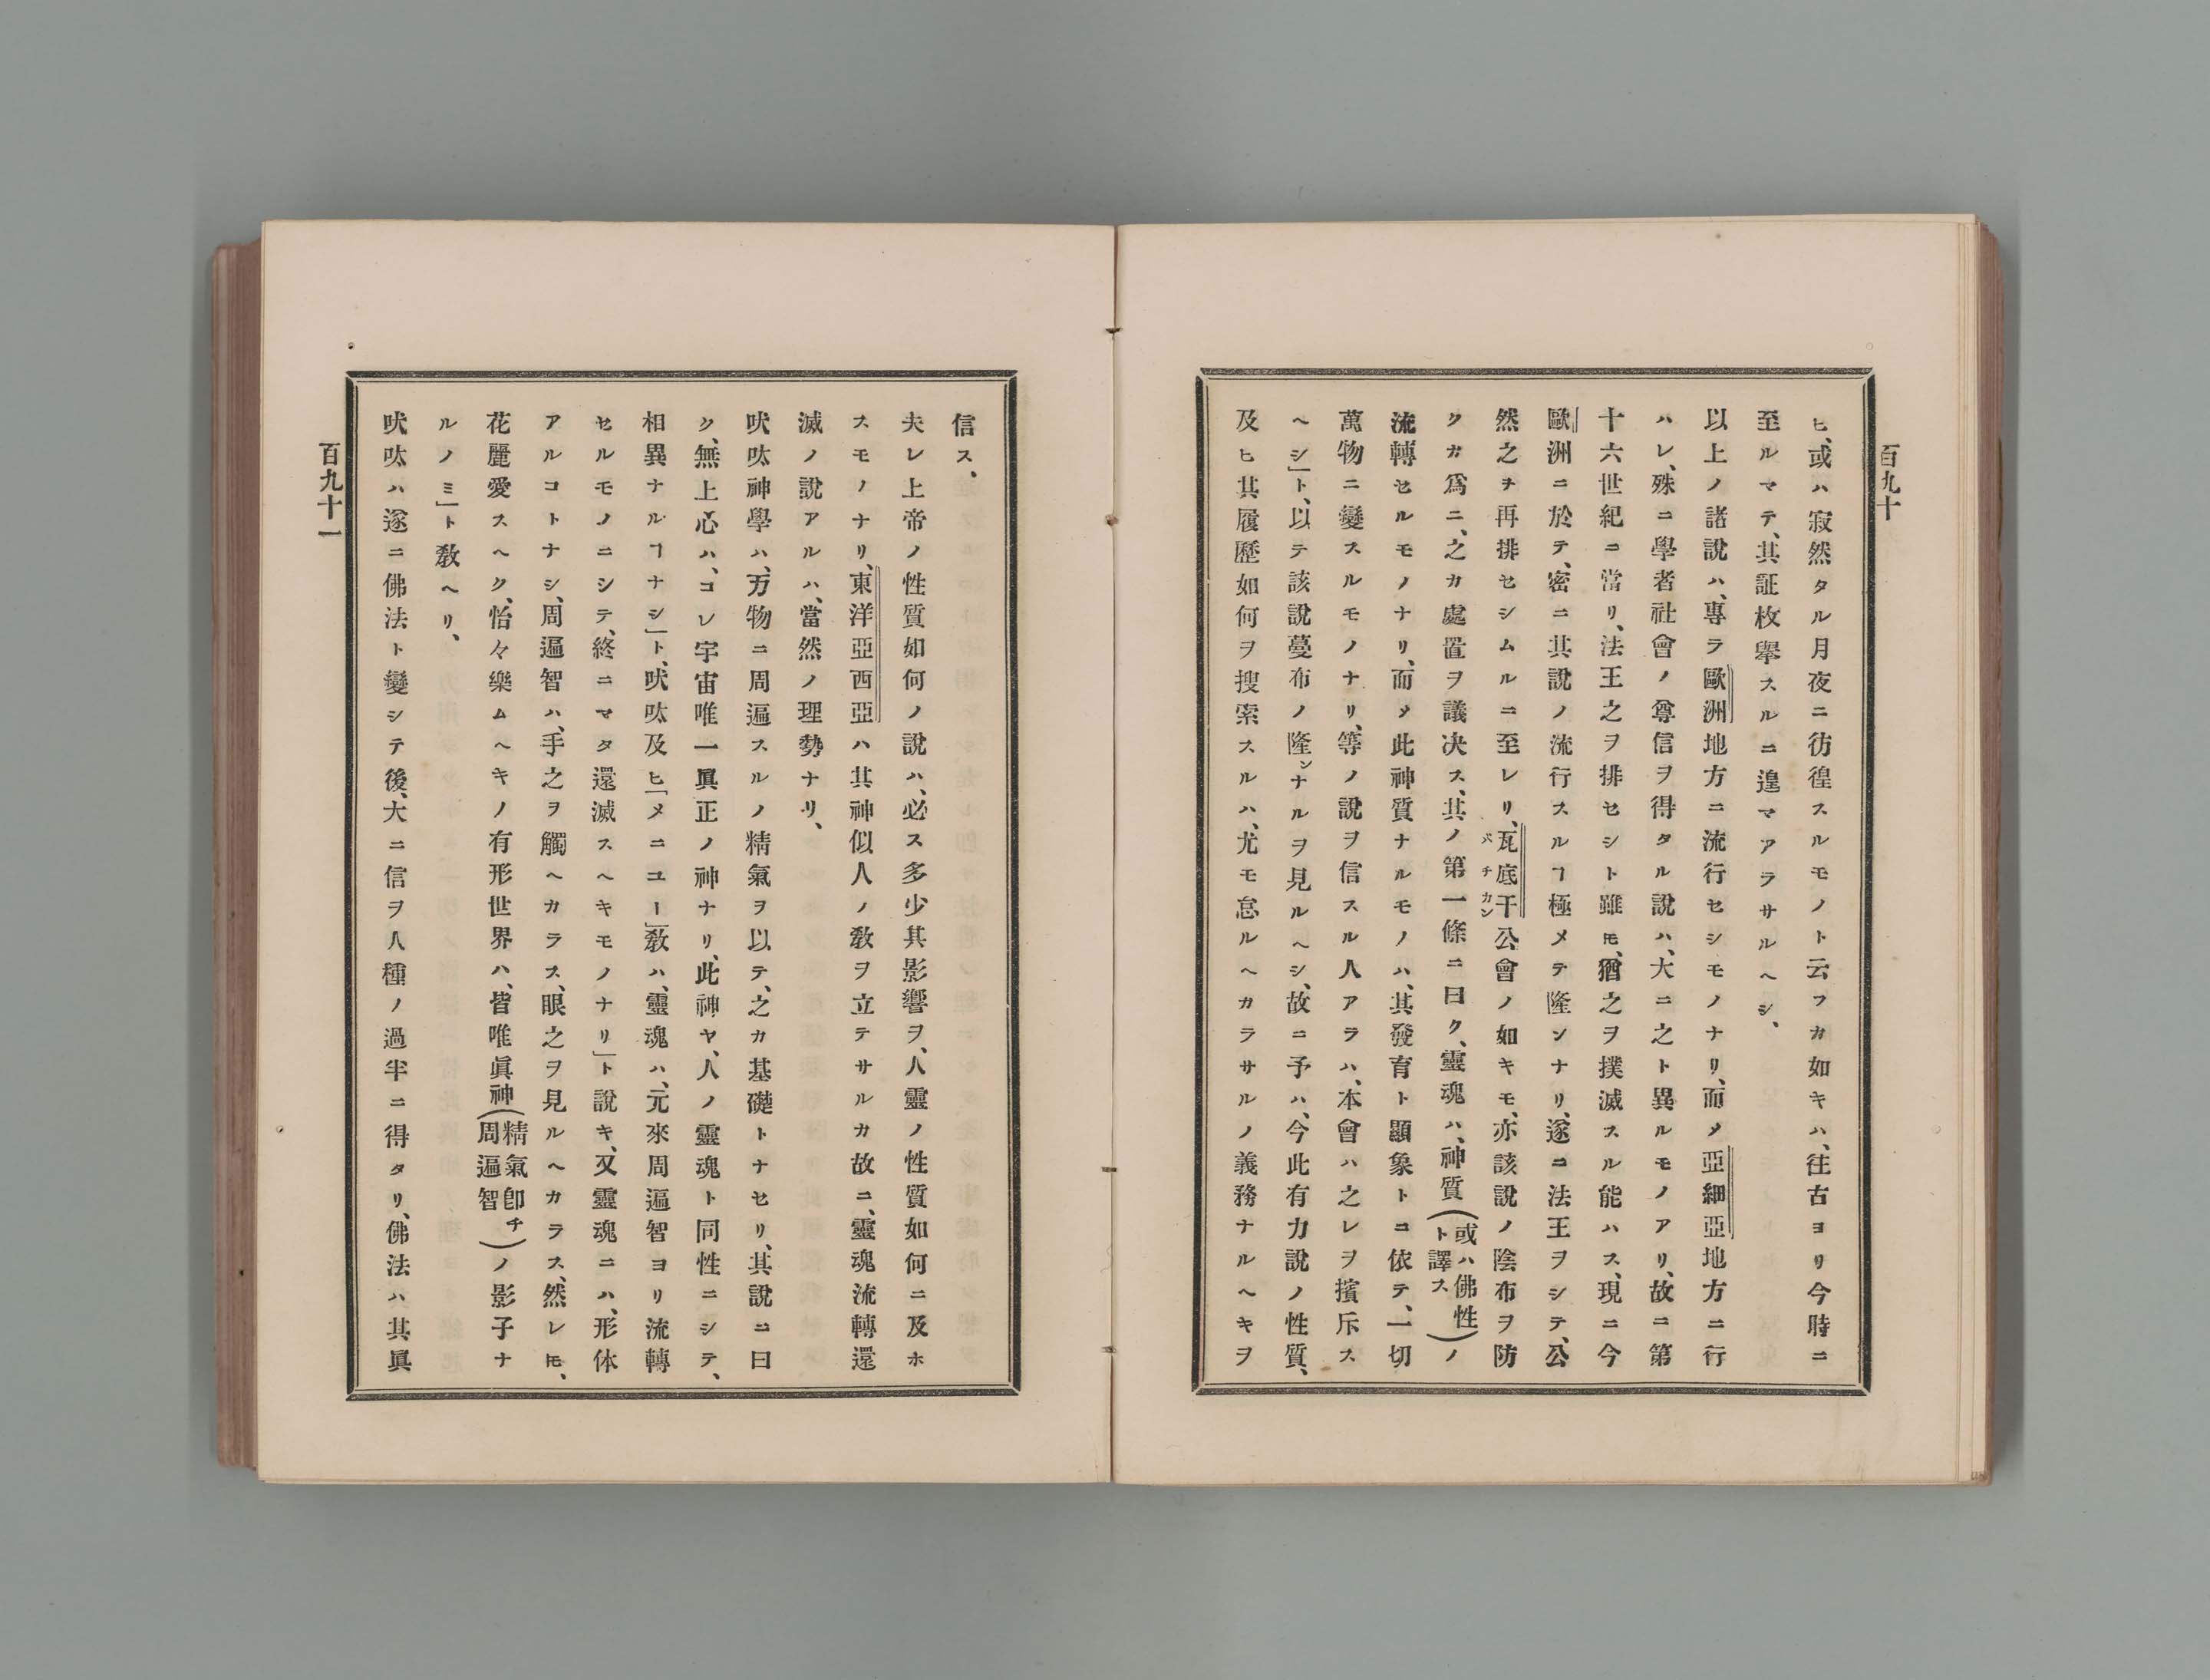 百九十
ヒ、或ハ寂然タル月夜ニ彷徨スルモノト云フカ如キハ、往古ヨリ今時ニ
至ルマテ、其証枚擧スルニ遑マアラサルヘシ、
以上ノ諸說ハ、專ラ歐洲地方ニ流行セシモノナリ、而メ亞細亞地方ニ行
ハレ、殊ニ學者社會ノ尊信ヲ得タル說ハ、大ニ之ト異ルモノアリ、故ニ第
十六世紀ニ當リ、法王之ヲ排セシト雖𪜈、猶之ヲ撲滅スル能ハス、現ニ今
歐洲ニ於テ、密ニ其說ノ流行スルヿ極メテ隆ンナリ、遂ニ法王ヲシテ、公
然之ヲ再排セシムルニ至レリ、瓦底干公會ノ如キモ、亦該說ノ陰布ヲ防
バチカン
クカ爲ニ、之カ處置ヲ議决ス、其ノ第一條ニ曰ク、靈魂ハ、神質(或ハ佛性ト譯ス)ノ
流轉セルモノナリ、而メ此神質ナルモノハ、其發育ト顯象トニ依テ、一切
萬物ニ變スルモノナリ、等ノ說ヲ信スル人アラハ、本會ハ之レヲ擯斥ス
ヘシ」ト、以テ該說蔓布ノ隆ンナルヲ見ルヘシ、故ニ予ハ、今此有力說ノ性質、
及ヒ其履歷如何ヲ搜索スルハ、尤モ怠ルヘカラサルノ義務ナルヘキヲ
信ス、
夫レ上帝ノ性質如何ノ說ハ、必ス多少其影響ヲ、人靈ノ性質如何ニ及ホ
スモノナリ、東洋亞西亞ハ其神似人ノ敎ヲ立テサルカ故ニ、靈魂流轉還
滅ノ說アルハ、當然ノ理勢ナリ、
吠呔神學ハ、万物ニ周遍スルノ精氣ヲ以テ、之カ基礎トナセリ、其說ニ曰
ク、無上心ハ、コレ宇宙唯一眞正ノ神ナリ、此神ヤ、人ノ靈魂ト同性ニシテ、
相異ナルヿナシ」ト、吠呔及ヒ「メニユー」敎ハ、靈魂ハ、元來周遍智ヨリ流轉
セルモノニシテ、終ニマタ還滅スヘキモノナリ」ト說キ、又靈魂ニハ、形体
アルコトナシ、周遍智ハ、手之ヲ觸ヘカラス、眼之ヲ見ルヘカラス、然レ𪜈、
花麗愛スヘク、怡々樂ムヘキノ有形世界ハ、皆唯眞神(精氣卽チ周遍智)ノ影子ナ
ルノミ」ト敎ヘリ、
吠呔ハ遂ニ佛法ト變シテ後、大ニ信ヲ人種ノ過半ニ得タリ、佛法ハ其眞
百九十一